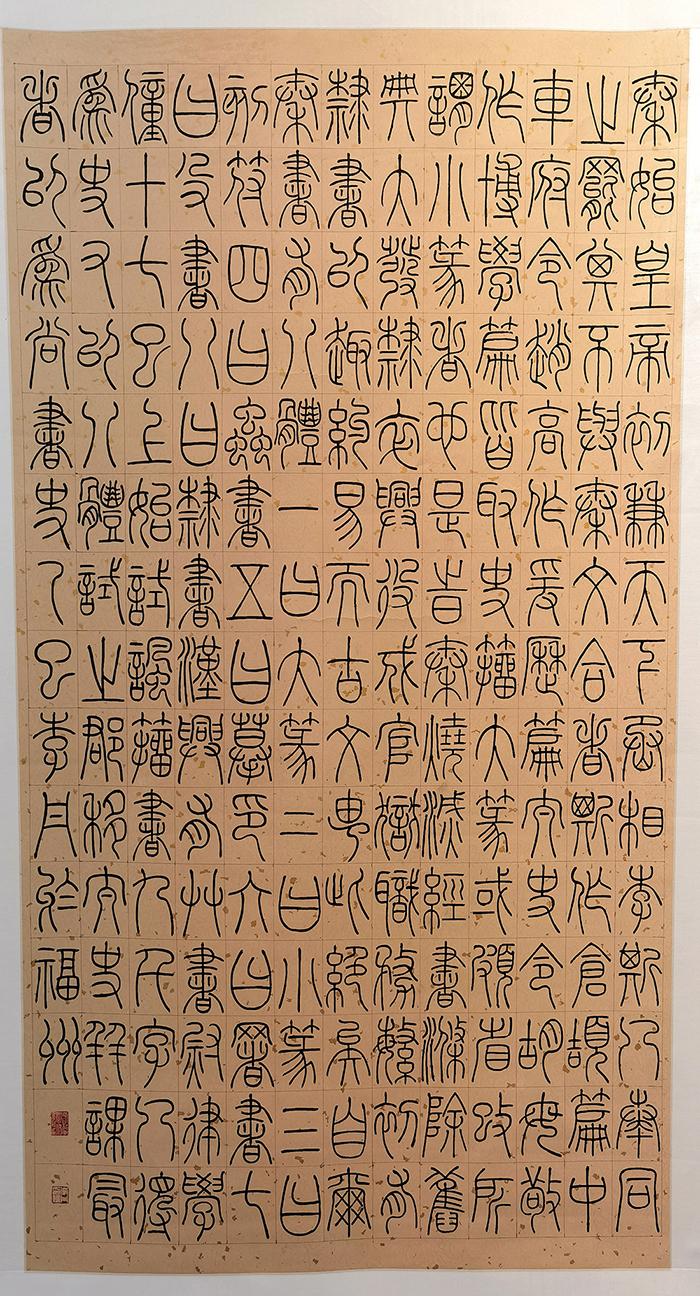 秦始皇帝初兼天下丞相李斯乃奏同
之罷其不與秦文合者斯作倉頡篇中
車府令趙高作爰歷篇太史令胡毋敬
作博學篇皆取史籀大篆或頗省改所
謂小篆者也是旹秦燒滅經書滌除舊
典大發隸卒興役戍官獄職務繁初有
隸書以趣約易而古文由此絕矣自爾
秦書有八體一曰大篆二曰小篆三曰
刻符四曰蟲書五曰摹印六曰署書七
曰殳書八曰隸書漢興有艸書尉律學
僮十七已上始試諷籀書九千字乃得
爲史又以八體試之郡移太史并課最
者以爲尚書史乙巳季月於福州